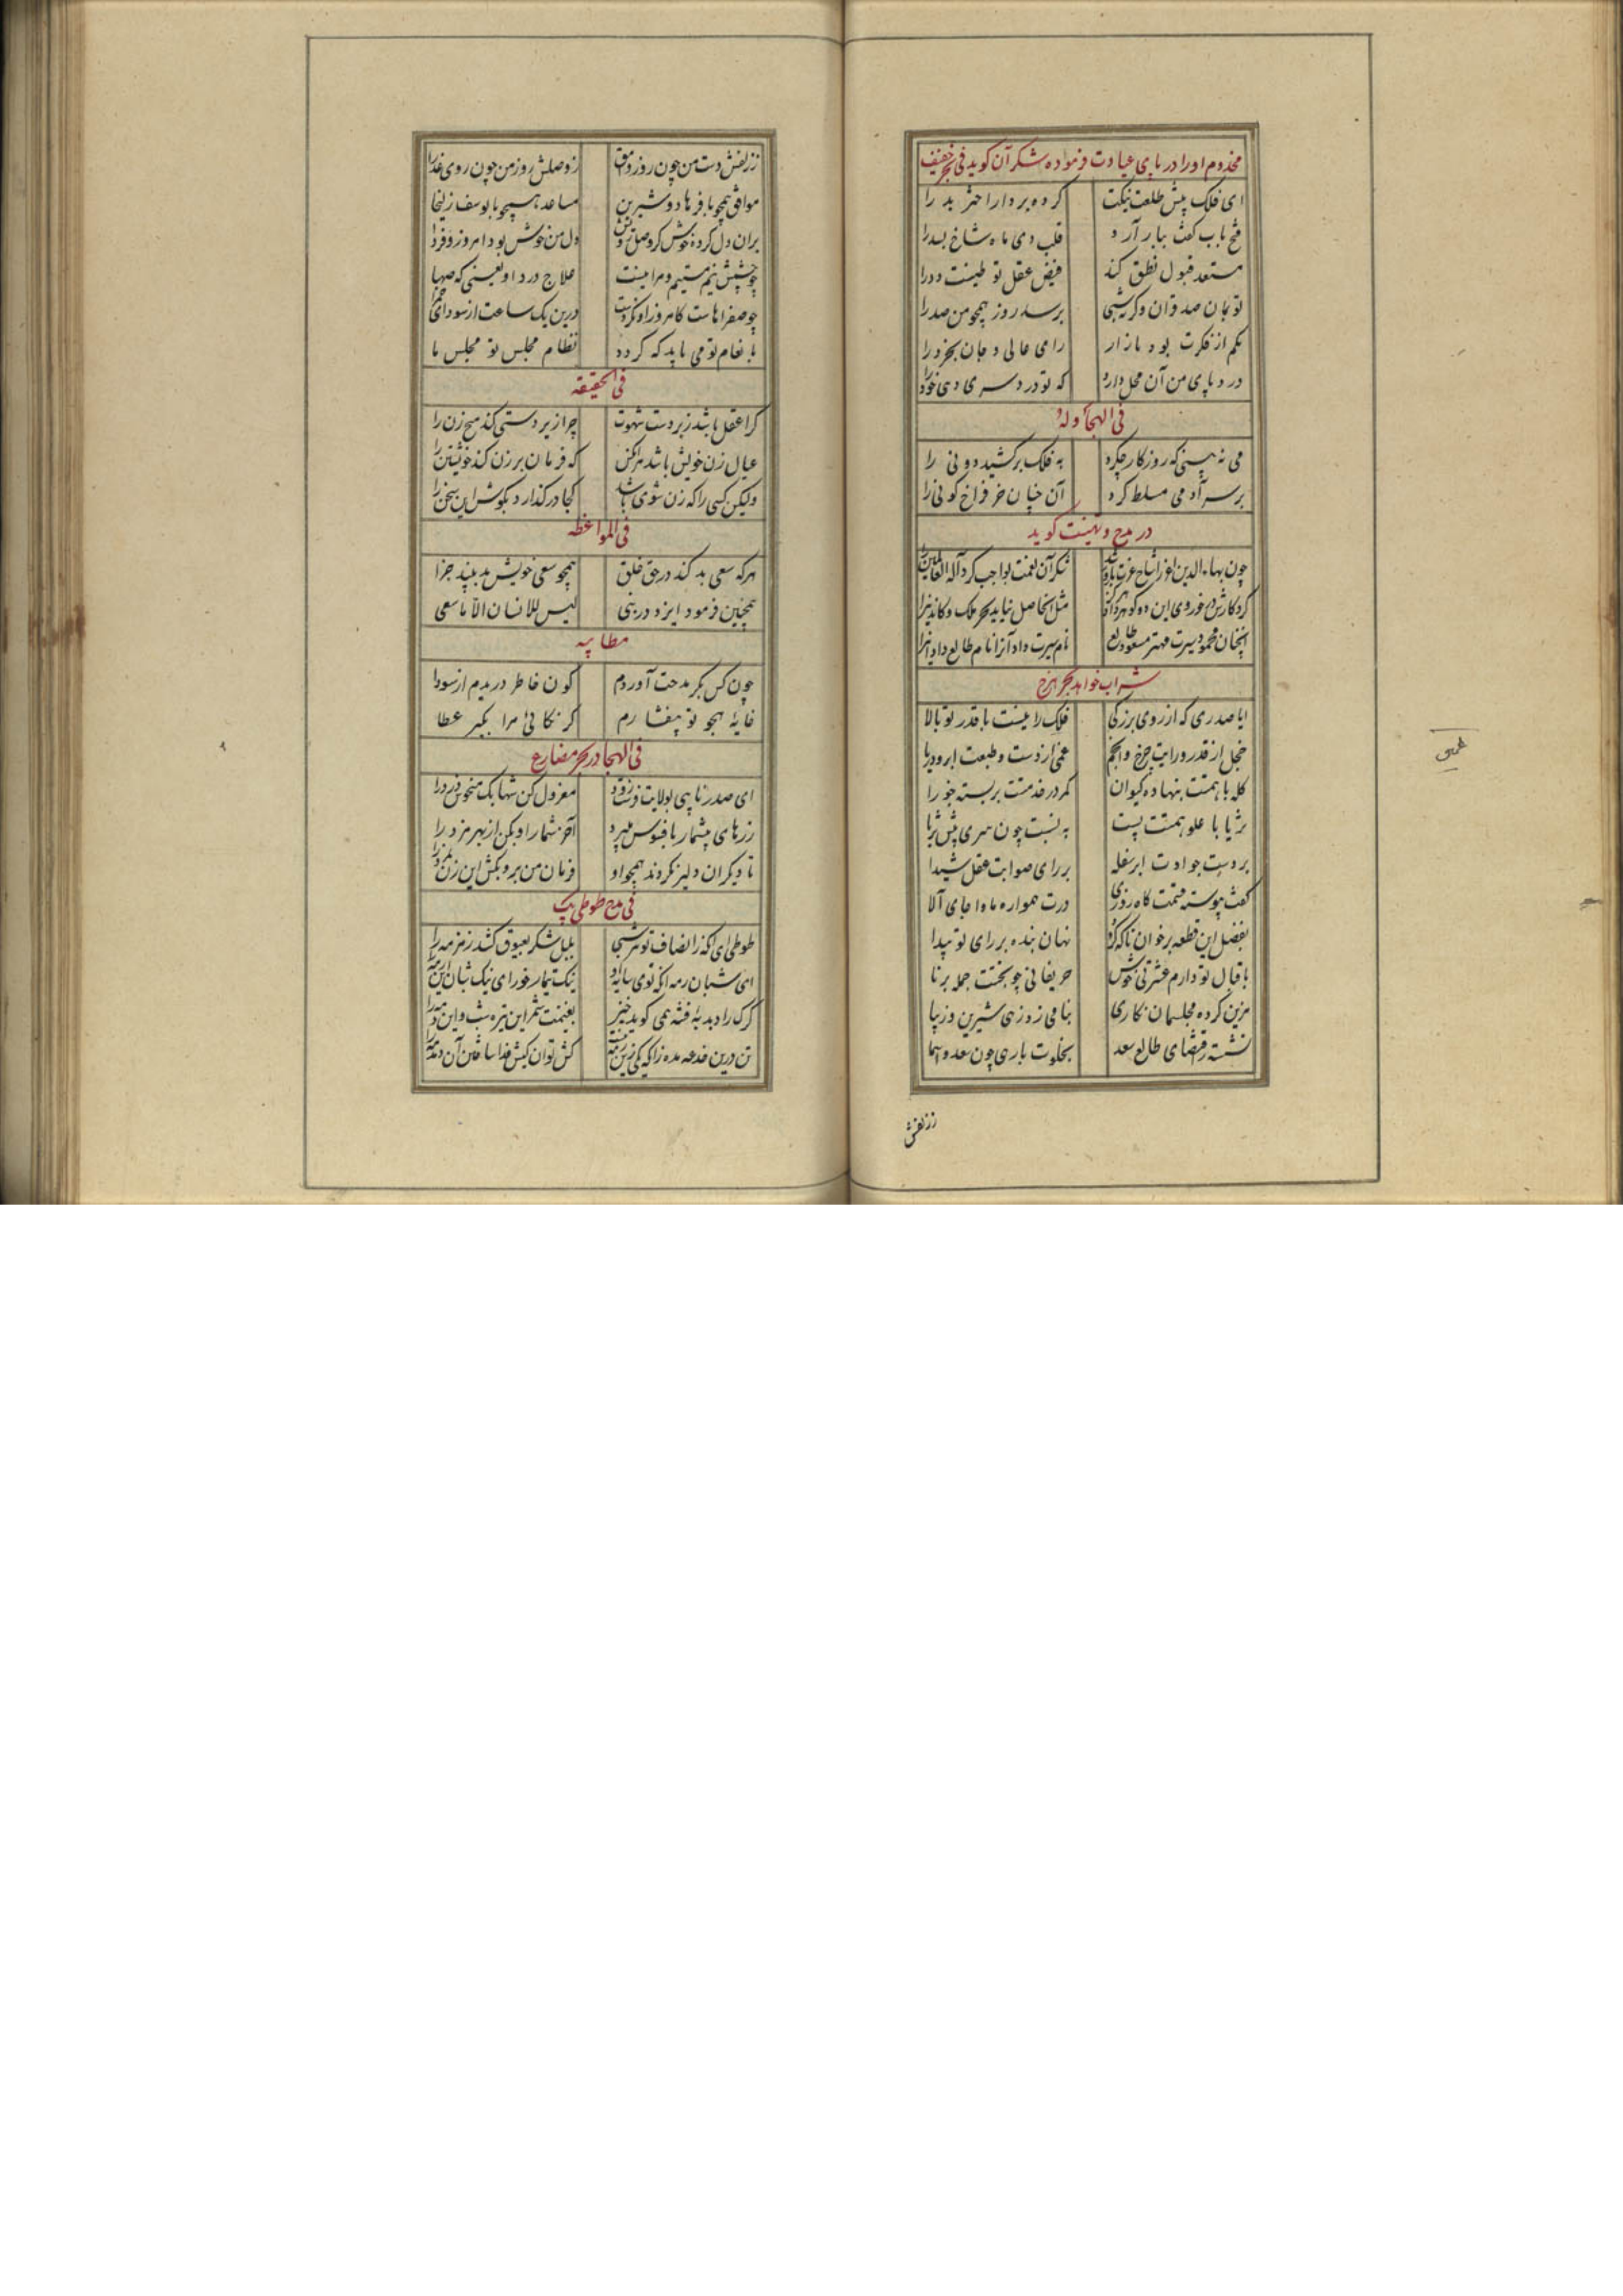 مخدوم او را در بای عیادت فرموده شکر آن کوید فی بحر خفیف
ای فلک پیش طلعت نیکت کرده بردار اختر بد را
فتح باب کفت ببار آرد قلب دی ماه شاخ بسد را
مستعد قبول نطق کند فیض عقل تو طینت دد را
تو بجان صد قران و کر نه شبی برسد روز همچو من صد را
یکم از فکرت بود بازار رامی عالی و جان بخرد را
درد پای من آن محل دارد که تو درد سری دهی خود را
فی الهجا وله
می نه بینی که روزکار چکرد به فلک برکشید دونی را
بر سر آدمی مسلط کرد آن چنان خر فراخ کونی را
در مدح و تهنیت کوید
چون بهاء الدین اغر انتاج عزت باز شد شکر آن نعمت بواجب کرد اله العالمین را
کرد کارش در خور وی این دو کوهر داد
آنچنان محمود سیرت مهتر مسعود طالع نام سیرت داد آنرا نام طالع داد اینرا
شراب خواهد بحر هزج
ایا صدری که از روی بزرکی فلک را نیست با قدر تو بالا
خجل از قدر و رایت چرخ و انجم غمی از دست و طبعت ابر و دریا
کله با همتت بنهاده کیوان کمر در خدمتت بربسته جوزا
ثریا با علو همتت پست به نسبت چون ثری پیش ثریا
بر دست جوادت ابر سفله بر رای صوابت عقل شیدا
کفت پیوسته قسمت کاه روزی درت همواره ماوا جای آلا
بفضل این قطعه بر خوان تا که کردد نهان بنده بر رای تو پیدا
باقبال تو دارم عشرتی خوش حریفانی چو بختت جمله برنا
مزین کرده مجلسمان نکاری بنامی زد زهی شیرین و زیبا
نشسته ز اقتضای طالع سعد بخلوت با رهی چون سعد و اسما
ز زلفش
ز زلفش دست من چون روز وامق ز وصلش روز من چون روی عذرا
موافق همچو با فرهاد و شیرین مساعد همچو با یوسف زلیخا
بران دل کرده خوش کز وصل دل من خوش بود امروز و فردا
چو چشمش نیم مستیم و مرا نیست علاج درد او یعنی که صهبا
چو صفراهاست کامروز او نکردست درین یک ساعت از سودای
بانعام تو می باید که کردد نظام مجلس تو مجلس ما
فی الحقیقه
کرا عقل باشد زبردست شهوت چرا زیردستی کند هیچ زن را
عیال زن خویش باشد هر آنکس که فرمان بر زن کند خویشتن را
ولیکن کسی را که زن شوی باشد کجا در کذارد بکوش این سخن را
فی المواعظه
هر که سعی بد کند در حق خلق همچو سعی خویش بد بیند جزا
همچنین فرمود ایزد در نبی لیس للانسان الا ما سعی
مطایبه
چون کس بکر مدحت آوردم کون خاطر دریدم از سودا
خایه هجو تو بیفشارم کر نکائی مرا بکیر عطا
فی الهجا در بحر مضارع
ای صدر نایبی بولایت فرست زود معزول کن شهابک منحوس دزد را
زرهای بیشمار بافسوس میبرد آخر شمار او بکن از بهر مزد را
تا دیکران دلیر نکردند همچو او فرمان من ببر و بکش این زن بمزد را
فی مدح طوطی بک
طوطی ای آنکه ز انصاف تو هر نیم شبی بلبل شکر بعیوق کشد زمزمه را
ای شبان رمه آنکه توی سایه او نیک تیمار خور ای نیک شبان این رمه را
کرک را دبدبه فتنه همی کوید خیز بغنیمت شمر این تیره شب و این دمه را
تن درین خدعه مده زانکه یکی زین کش توان کیش فدا ساختن آن دمدمه را